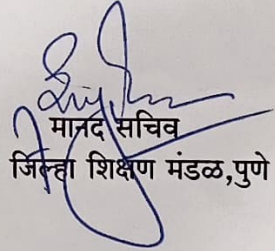 मानद सचिव
जिल्हा शिक्षण मंडळ,पुणे